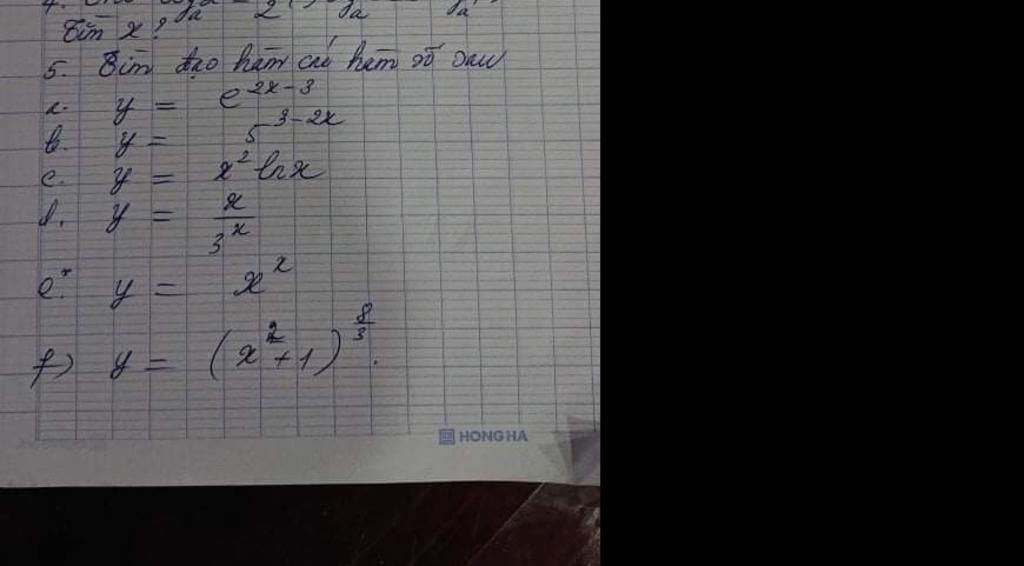 Tìm x?
5. Tìm đạo hàm các hàm số sau
a. y = e^{2x-3}
b. y = 5^{3-2x}
c. y = x² lnx
d. y = x/3^x
e*. y = x^x
f) y = (x²+1)^{8/3}.
HONG HA